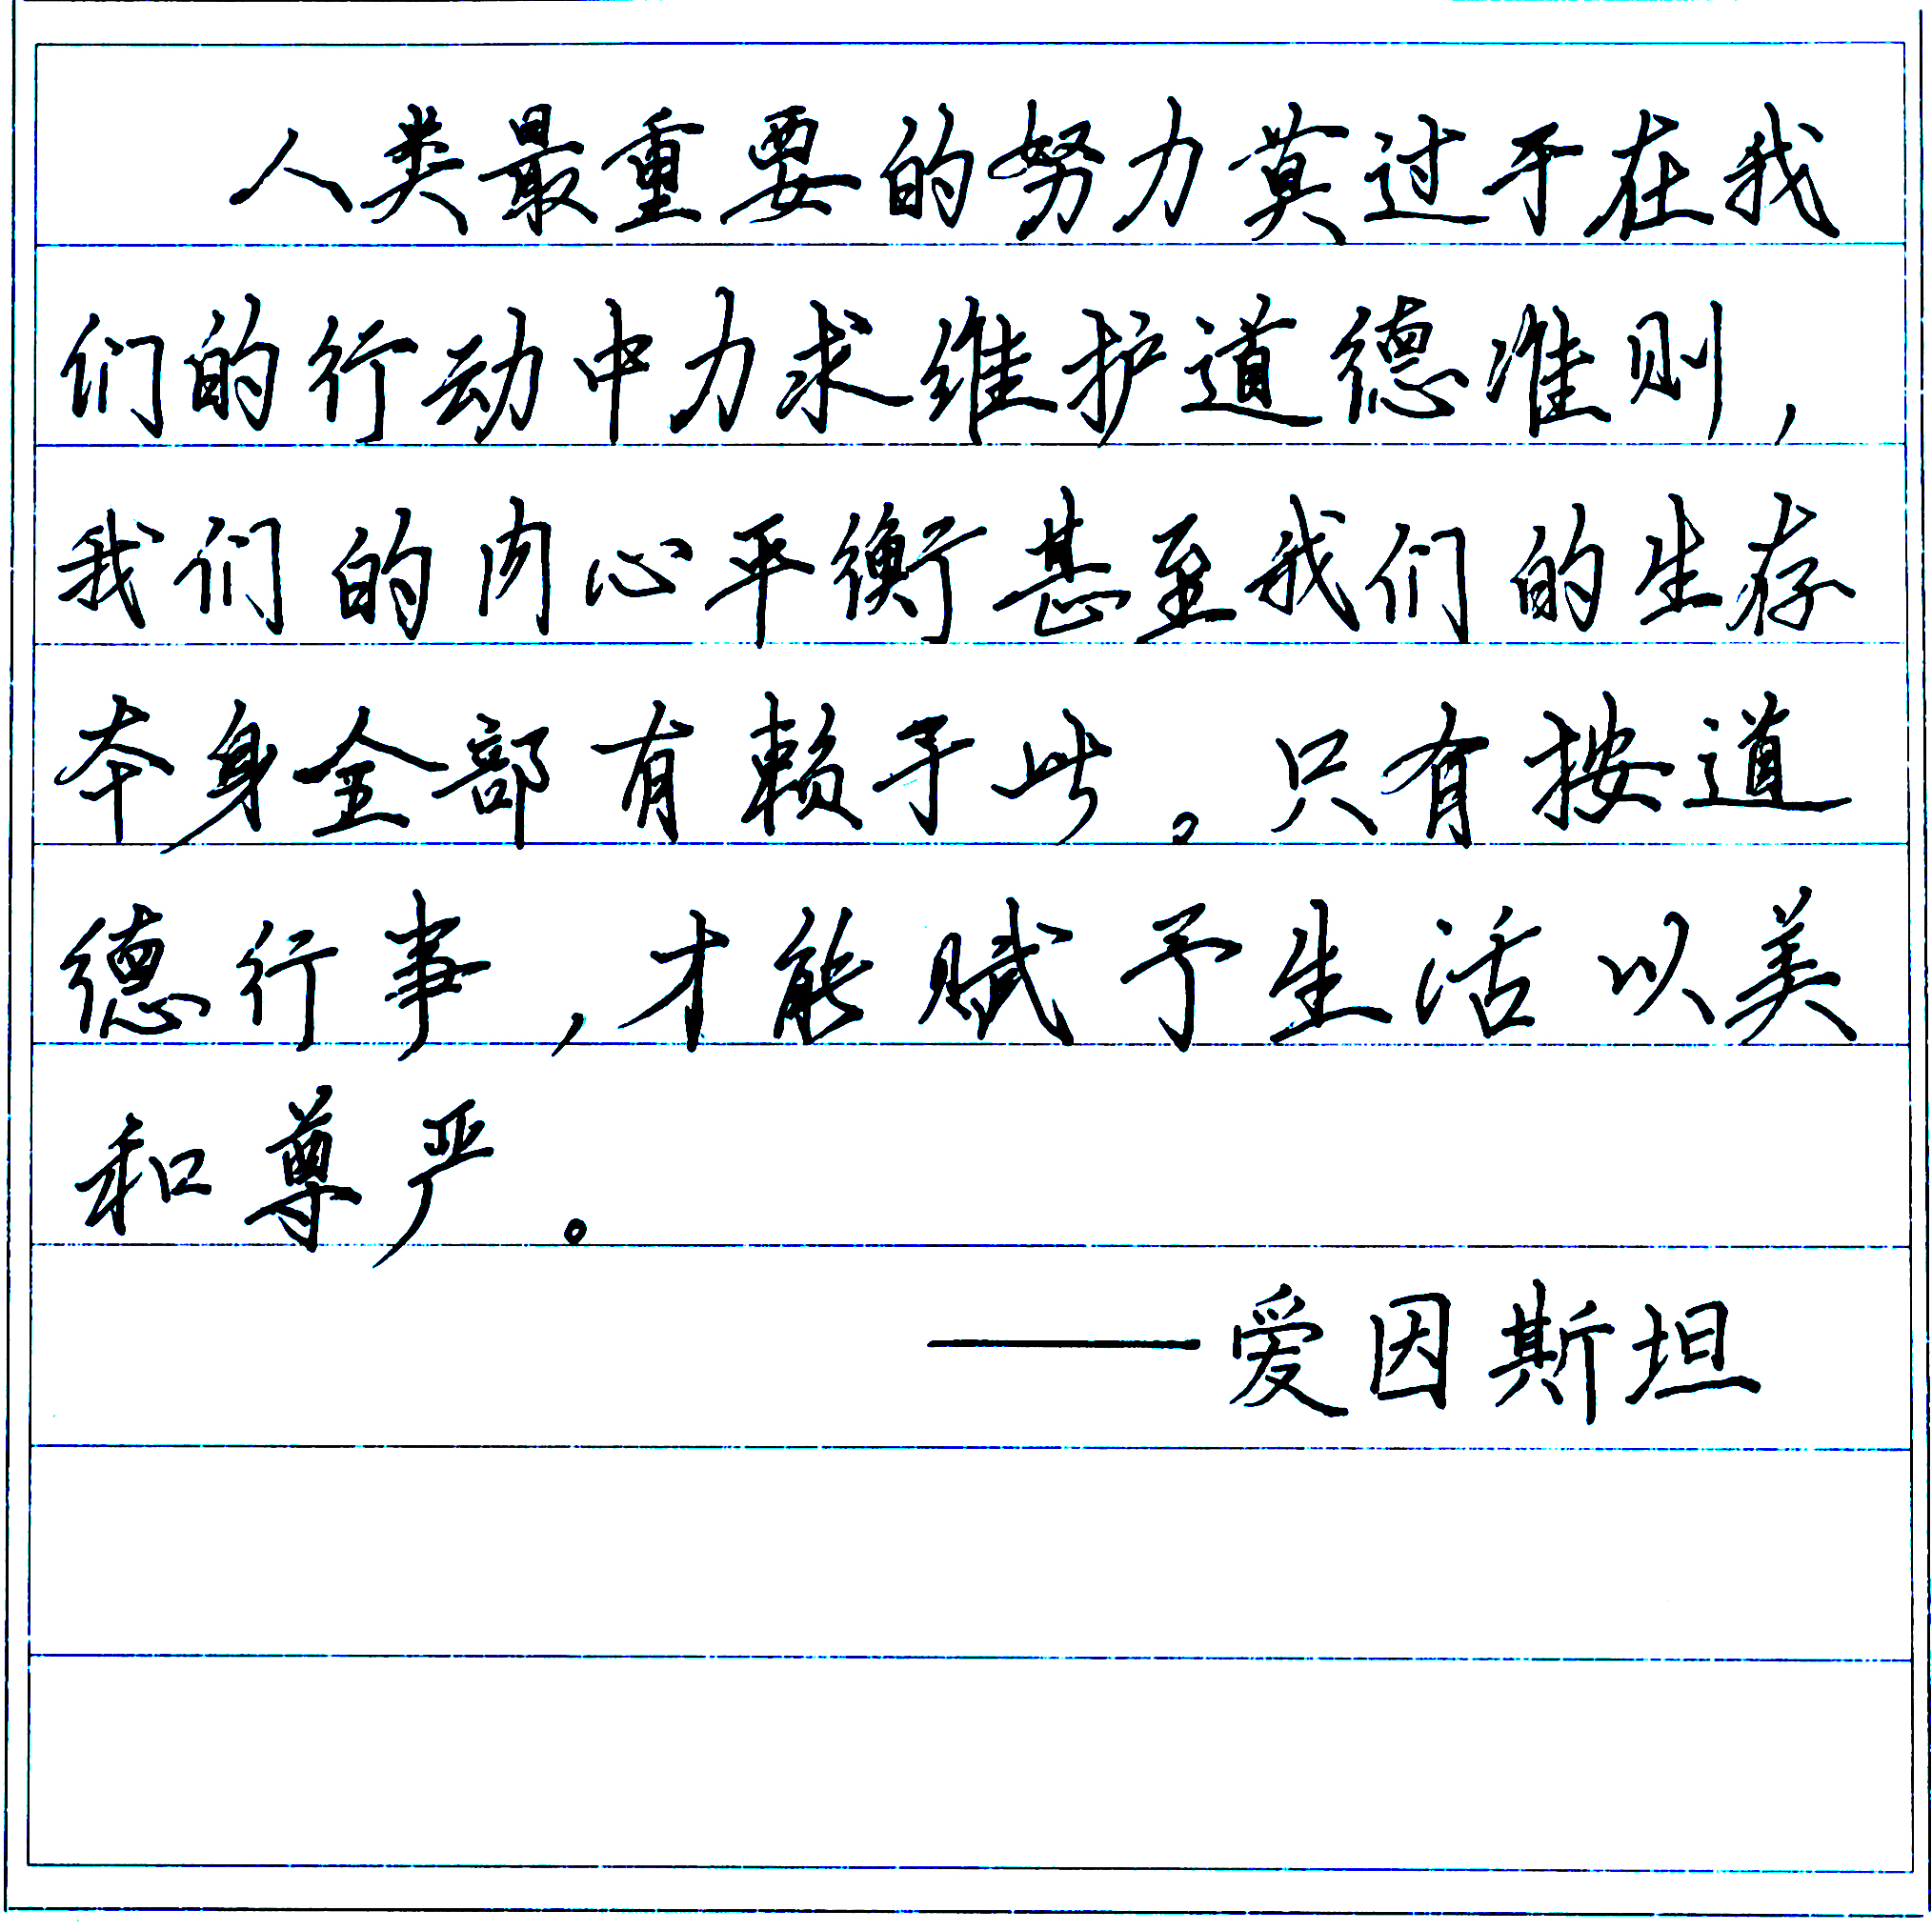 人类最重要的努力莫过于在我
们的行动中力求维护道德准则，
我们的内心平衡甚至我们的生存
本身全部有赖于此。只有按道
德行事，才能赋予生活以美
和尊严。
——爱因斯坦